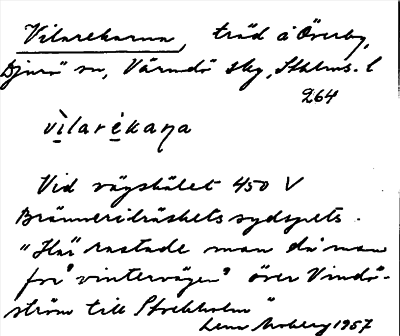 Vilarekarna, träd å Överby,
Djurö sn, Värmdö skg, Stklms. l
264
vìlarékaṇa
Vid vägskälet 450 V
Brännerikräskets sydspets.
"Här rastade man då man
for "vintervägen" över Vindö-
ström till Stockholm"
Lena Moberg 1957